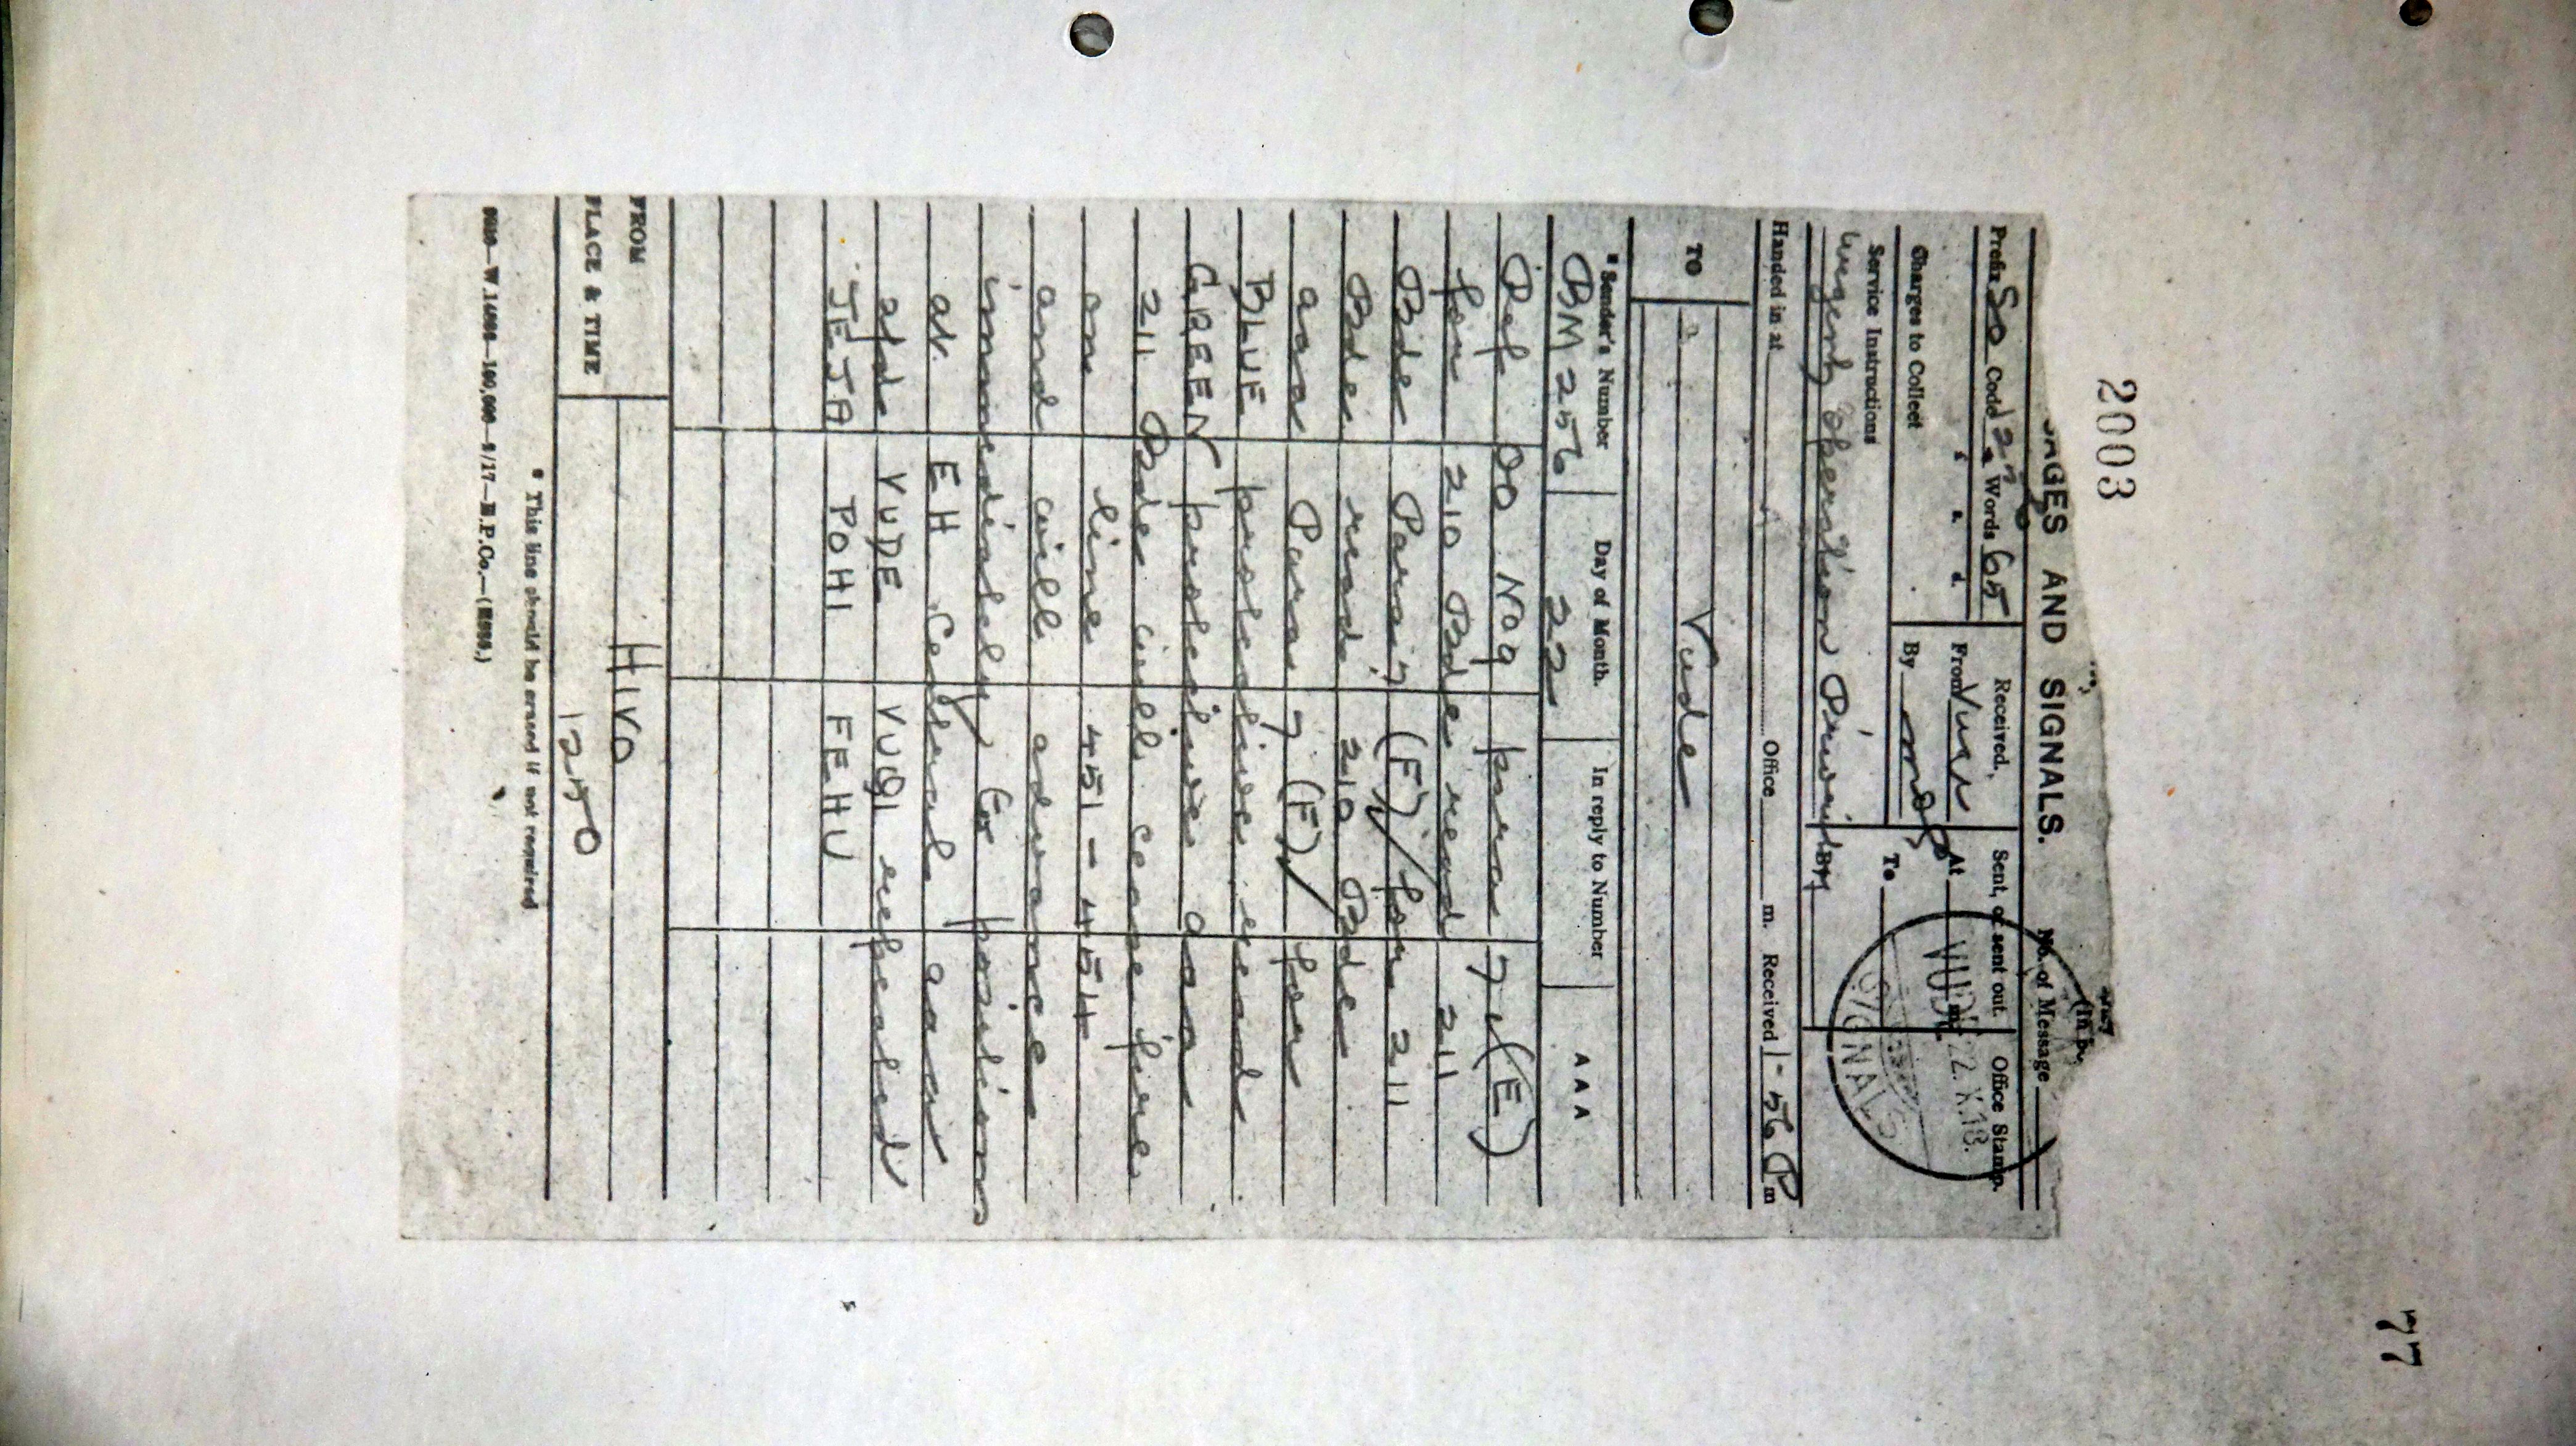 2003
77
AGES AND SIGNALS.
No. of Message
Prefix SO Code Words 65
Received,
Sent, or sent out.
Office Stamp.
£ s. d.
From
At m.
VUDE
22.X.18.
SIGNALS
Charges to Collect
By
To
Service Instructions
Urgent Operation Priority BM
Handed in at Office m. Received 1-56 P m
TO
Vude
* Sender's Number
Day of Month.
In reply to Number
A A A
BM 256
22
Ref OO No 9 para 7 (E)
for 210 Bde read 211
Bde Para 7 (F) for 211
Bde read 210 Bde
aaa Para 7 (F) for
BLUE protective read
GREEN protective aaa
211 Bde will cease fire
on line 451 - 454
and will advance
immediately to positions
at EH Central aaa
addd VUDE VUQI repeated
JEJA POHI FEHU
FROM
HIVO
PLACE & TIME
1250
* This line should be erased if not required